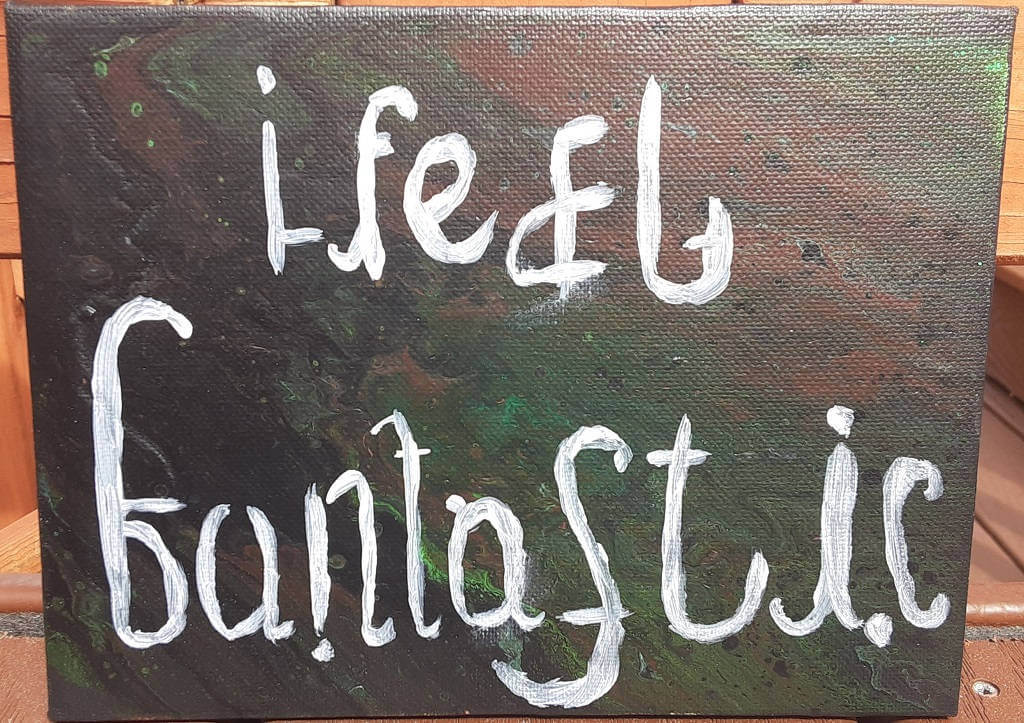 i feel
fantastic